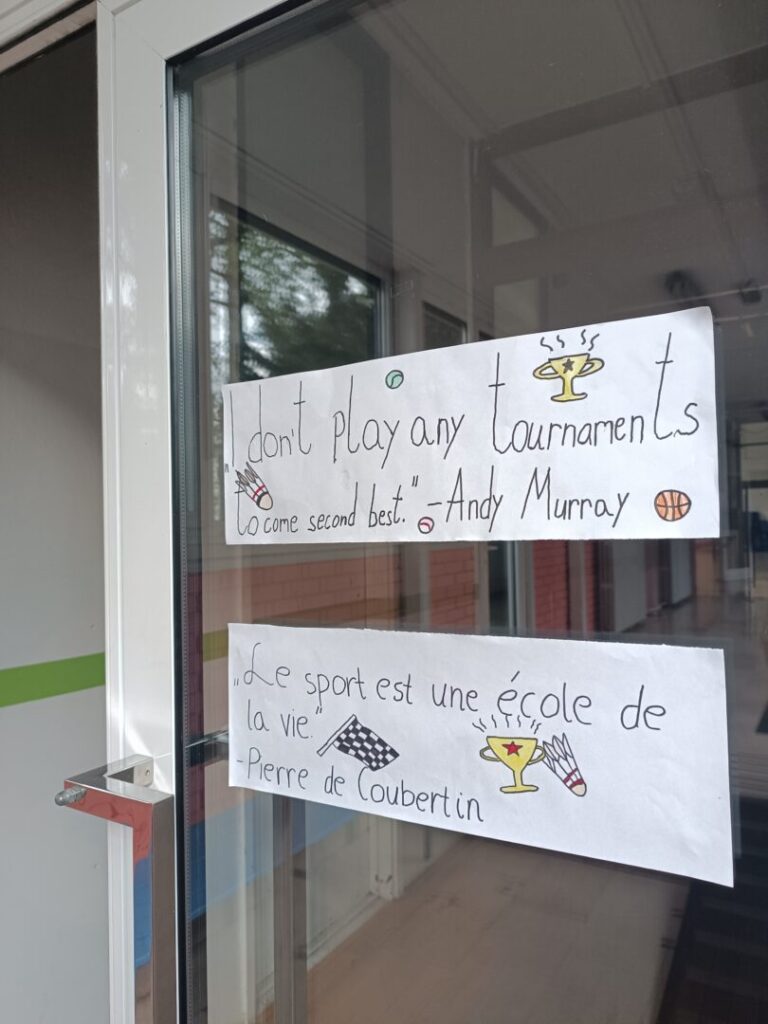 I don't play any tournaments
to come second best." - Andy Murray
„Le sport est une école de
la vie."
-Pierre de Coubertin